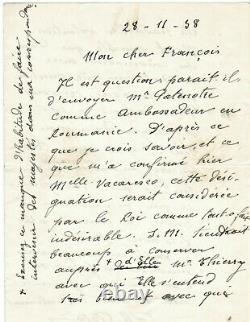 28-11-38
Mon cher François
Il est question parait-il
d'envoyer Mr Palenotte
comme Ambassadeur en
Roumanie. D'après ce
que je crois savoir, et ce
que m'a confirmé hier
Melle Vacaresco, cette dési
gnation serait considérée
par le Roi comme tout à fait
indésirable. S. M. tiendrait
beaucoup à conserver
auprès + d'Elle Mr Thierry
avec qui Elle s'entend
très bien et avec qui
+ Excusez ce manque d'habitude de faire
intervenir des majestés dans ma correspondance